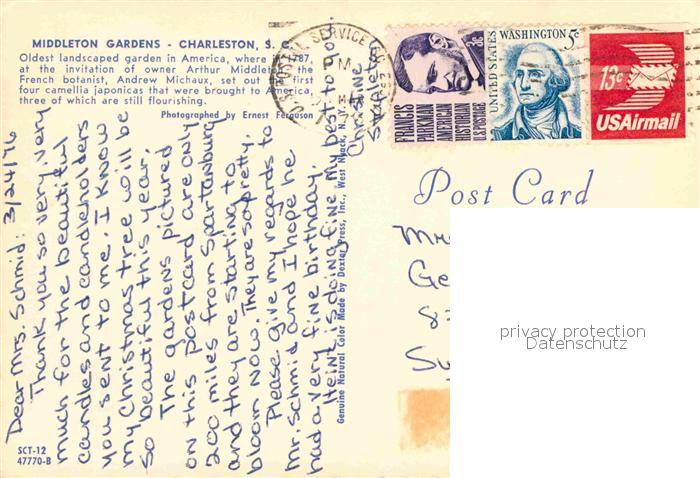 MIDDLETON GARDENS - CHARLESTON, S. C.
Oldest landscaped garden in America, where in 1787,
at the invitation of owner Arthur Middleton, the
French botanist, Andrew Michaux, set out the first
four camellia japonicas that were brought to America,
three of which are still flourishing.
Photographed by Ernest Ferguson
U.S. POSTAL SERVICE SC
PM
FRANCIS
PARKMAN
AMERICAN
HISTORIAN
U.S. POSTAGE
WASHINGTON
5c
UNITED STATES
13c
USAirmail
Post Card
3/24/76
Dear Mrs. Schmid:
Thank you so very, very
much for the beautiful
candles and candleholders
you sent to me. I know
my Christmas tree will be
so beautiful this year.
The gardens pictured
on this postcard are only
200 miles from Spartanburg
and they are starting to
bloom now. They are so pretty.
Please give my regards to
Mr. Schmid and I hope he
had a very fine birthday.
Heinz is doing fine. My best to you.
Christine
Genuine Natural Color Made by Dexter Press, Inc., West Nyack, N. Y.
SCT-12
47770-B
privacy protection
Datenschutz